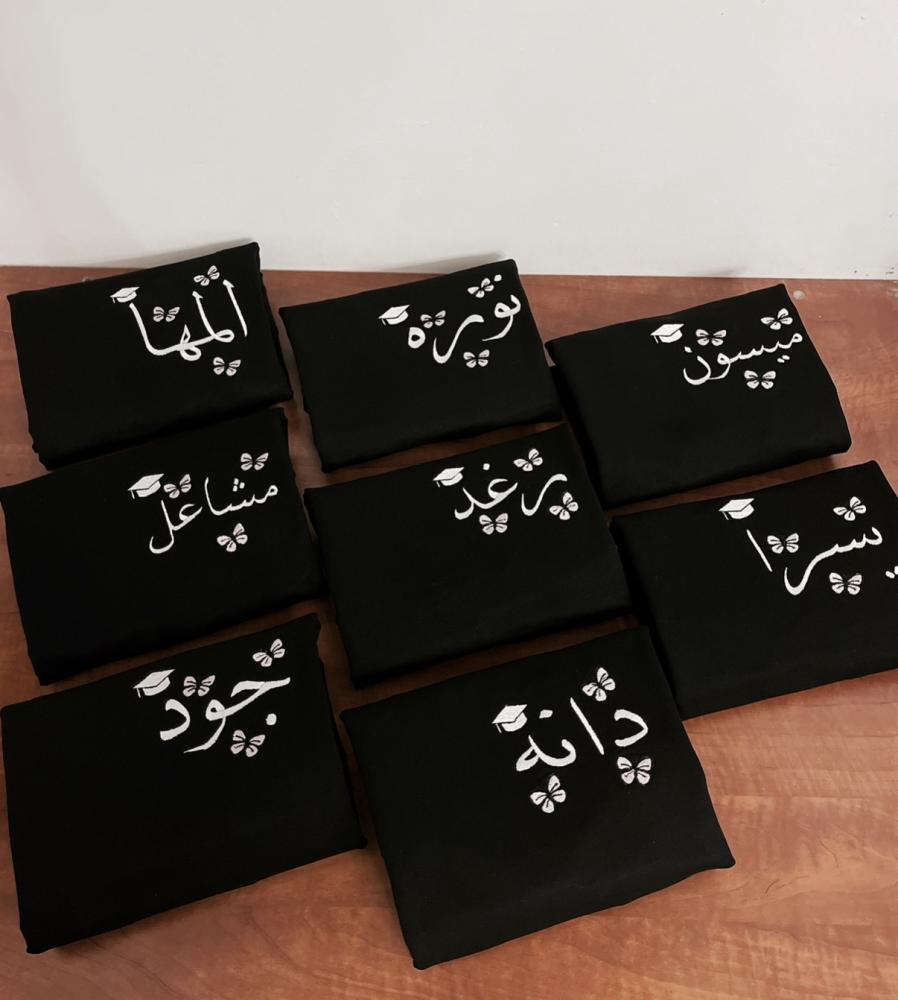 ميسون
نوره
المها
يسرا
رغد
مشاعل
دانه
جود